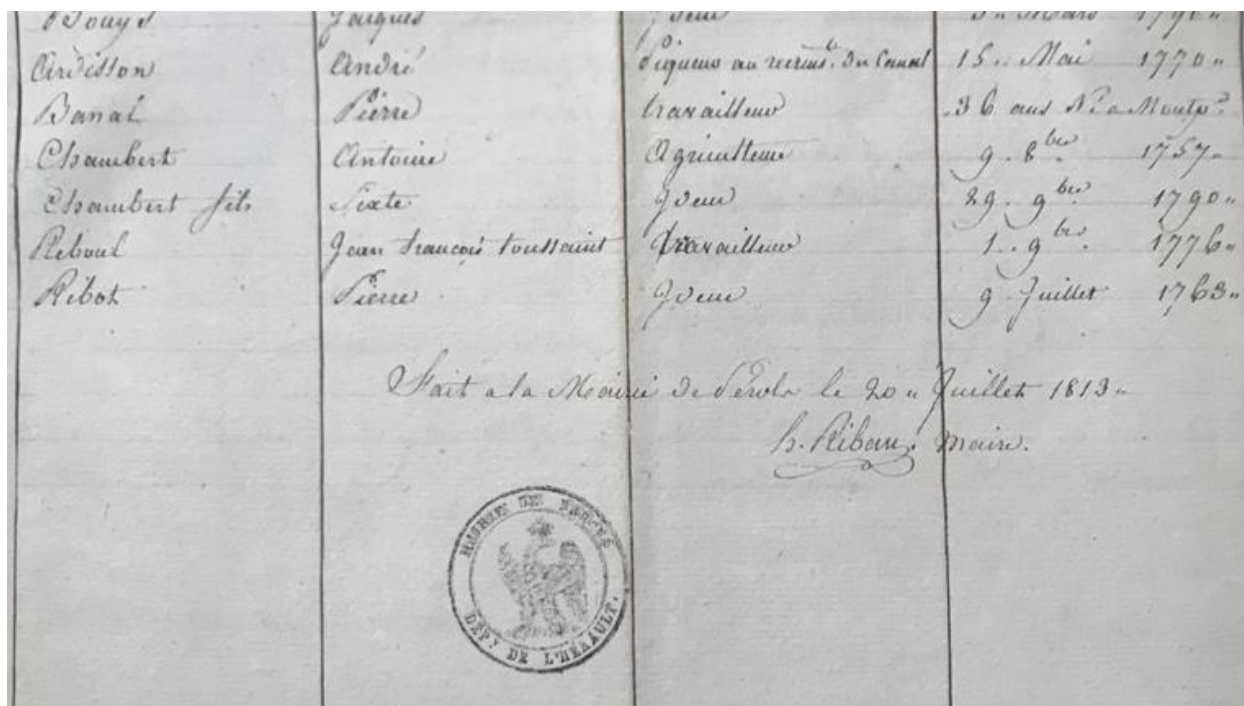 Jacques
Ardisson André Piqueur au recreus.t Du Canal 15 „ Mai 1770 „
Banal Pierre travailleur 36 ans Né a Montp.r
Chambert Antoine Agriculteur 9 . 8 bre 1757 „
Chambert fils Sixte Idem 29 . 9 bre 1790 „
Reboul Jean francois toussaint travailleur 1 . 9 bre 1776 „
Ribot Pierre Idem 9 Juillet 1763 „
Fait a la Mairie de Pérols le 20 „ Juillet 1813 „
h. Riban, Maire.
MAIRIE DE PEROLS
DEP.T DE L'HERAULT.